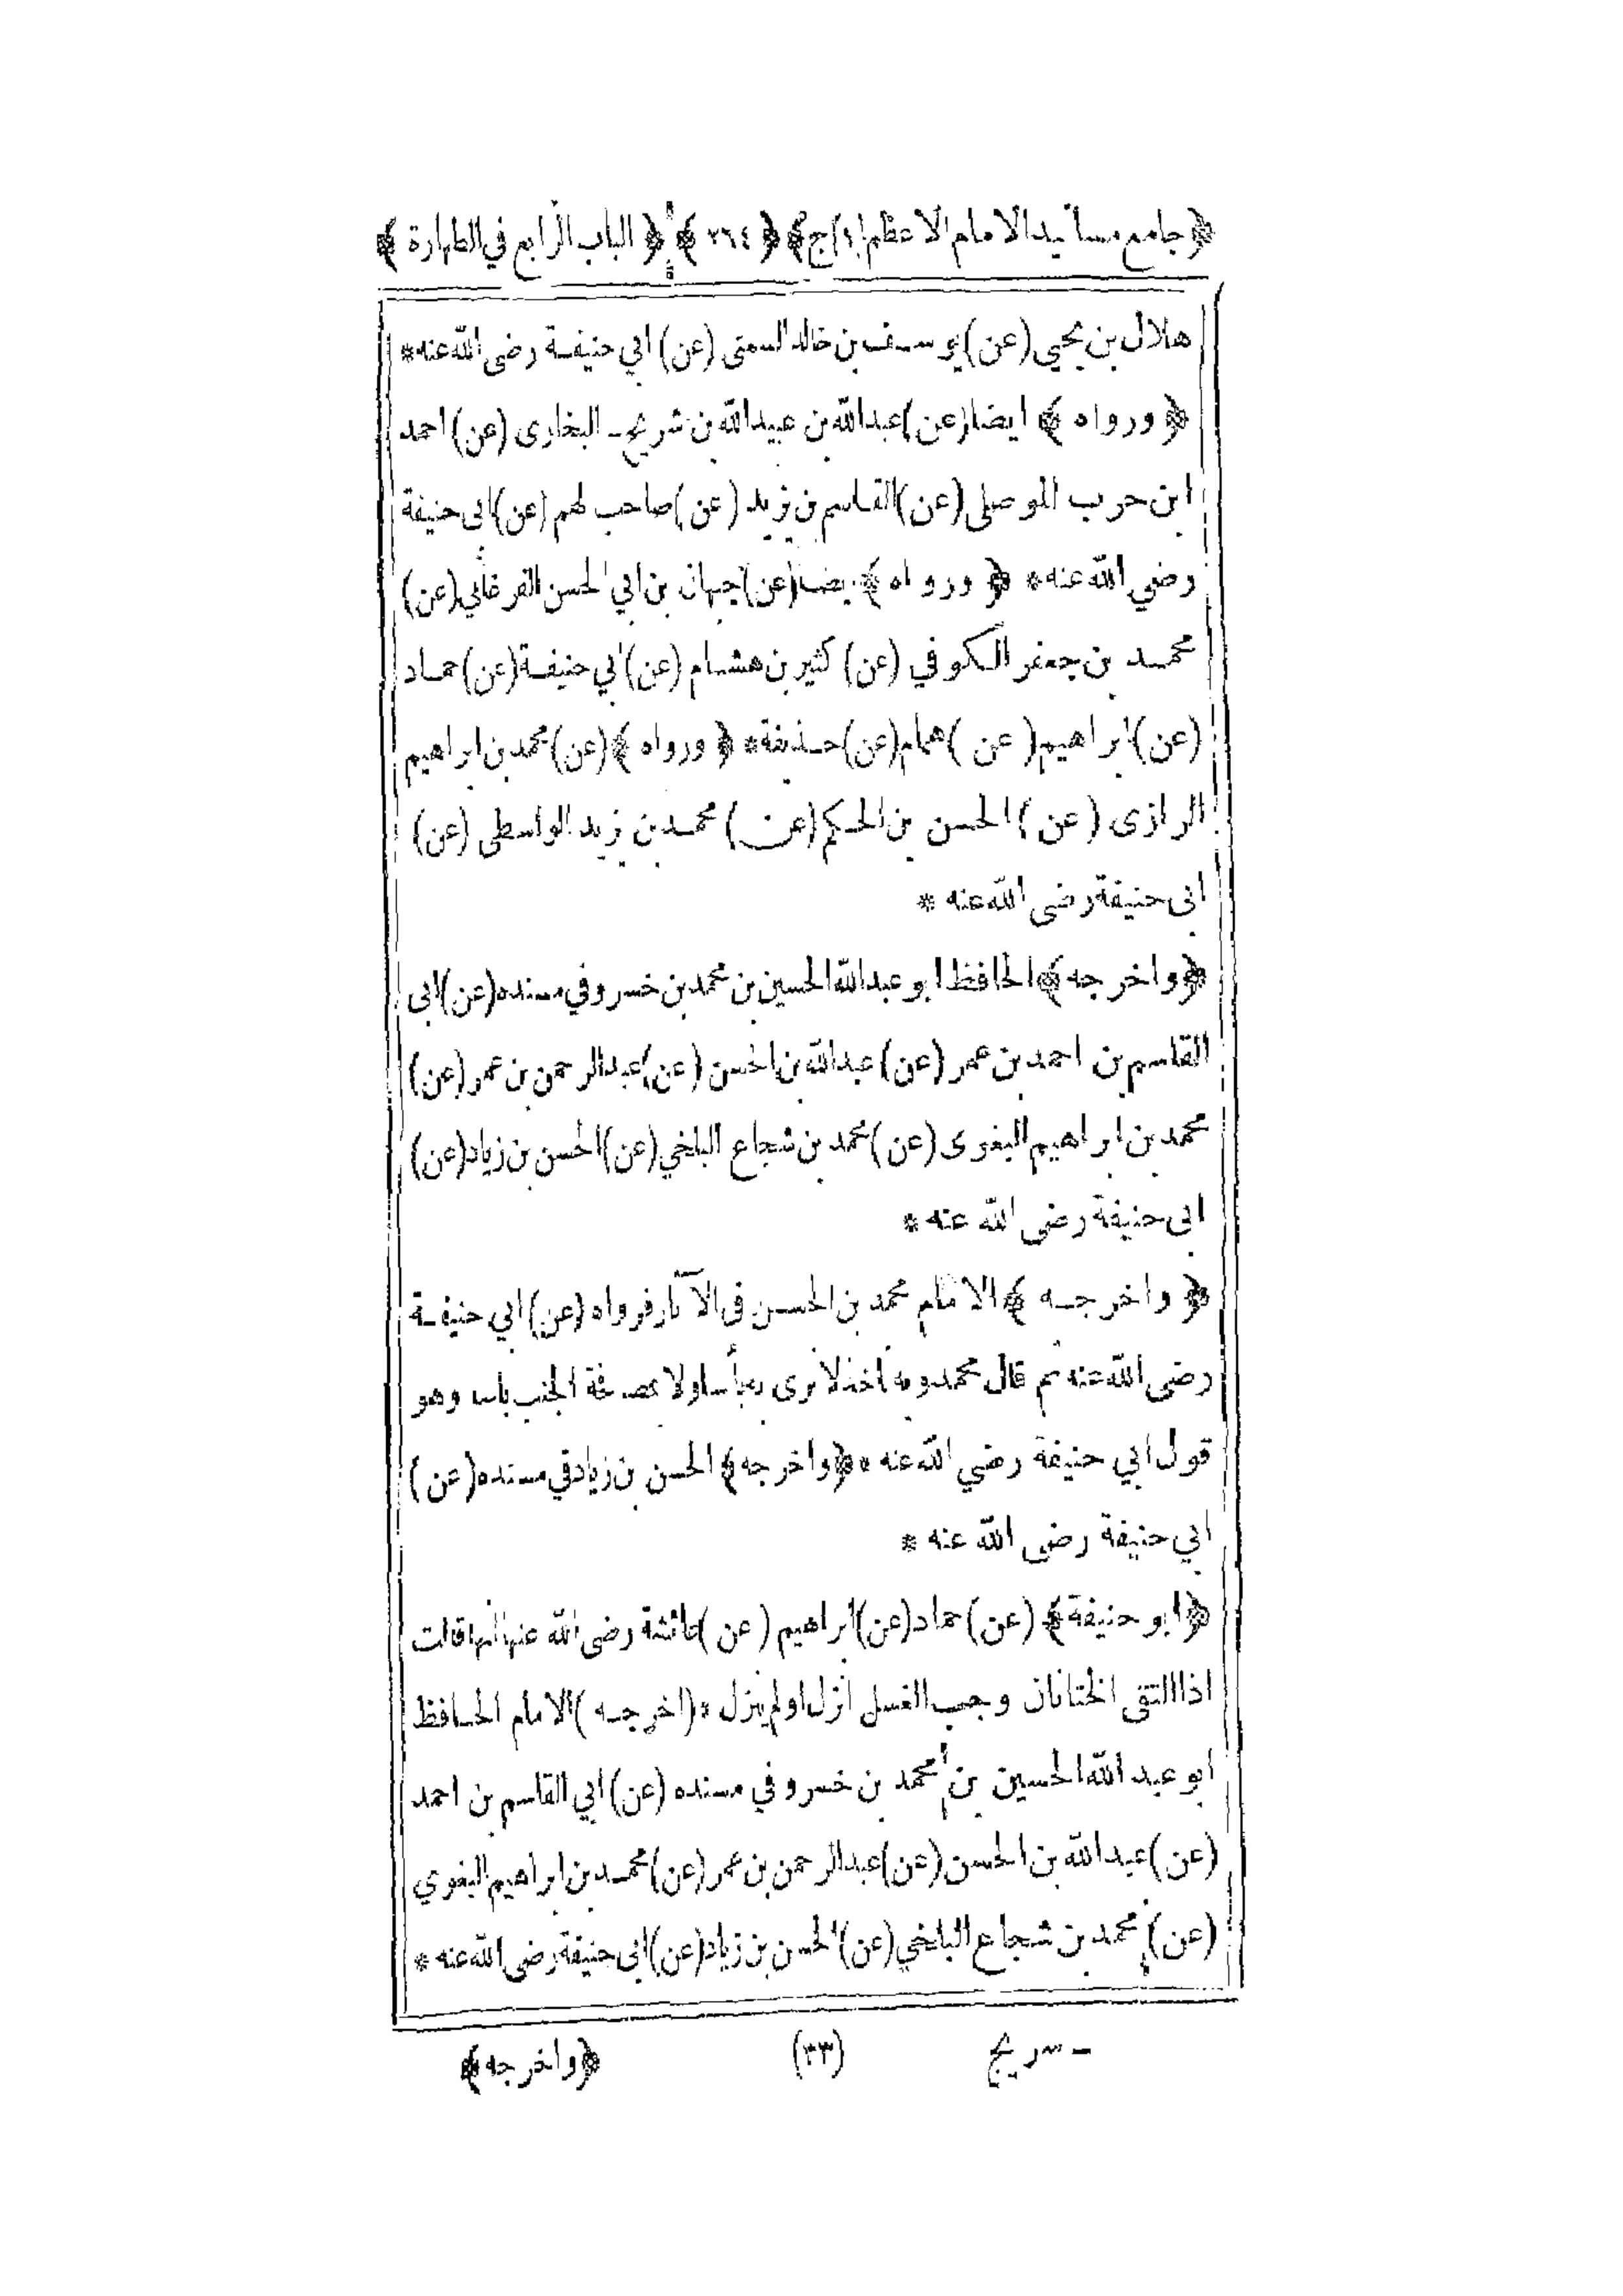 ﴿جامع مسانيد الامام الاعظم [١]ج﴾ ﴿٢٦٤﴾ ﴿الباب الرابع في الطهارة﴾
هلال بن يحيي (عن) يوسف بن خالد السمتى (عن) ابي حنيفة رضى الله عنه*
﴿ورواه﴾ ايضا (عن) عبدالله بن عبيدالله بن شريح ـ البخارى (عن) احمد
ابن حرب الموصلى (عن) القاسم بن يزيد (عن) صاحب لهم (عن) ابى حنيفة
رضي الله عنه* ﴿ورواه﴾ ايضا (عن) جبهان بن ابي الحسن الفرغاني (عن)
محمد بن جعفر الكوفي (عن) كثير بن هشام (عن) ابي حنيفة (عن) حماد
(عن) ابراهيم (عن) همام (عن) حذيفة* ﴿ورواه﴾ (عن) محمد بن ابراهيم
الرازى (عن) الحسن بن الحكم (عن) محمد بن يزيد الواسطى (عن)
ابى حنيفة رضى الله عنه *
﴿واخرجه﴾ الحافظ ابو عبدالله الحسين بن محمد بن خسرو في مسنده (عن) ابى
القاسم بن احمد بن عمر (عن) عبدالله بن الحسن (عن) عبدالرحمن بن عمر (عن)
محمد بن ابراهيم البغوى (عن) محمد بن شجاع البلخي (عن) الحسن بن زياد (عن)
ابى حنيفة رضى الله عنه *
﴿واخرجه﴾ الامام محمد بن الحسن فى الآثار فرواه (عن) ابي حنيفة
رضى الله عنه ثم قال محمد وبه ناخذ لا نرى به بأسا ولا بمصافحة الجنب باسا وهو
قول ابي حنيفة رضي الله عنه * ﴿واخرجه﴾ الحسن بن زياد في مسنده (عن)
ابي حنيفة رضى الله عنه *
﴿ابو حنيفة﴾ (عن) حماد (عن) ابراهيم (عن) عائشة رضى الله عنها انها قالت
اذا التقى الختانان وجب الغسل انزل اولم ينزل * (اخرجه) الامام الحافظ
ابو عبد الله الحسين بن محمد بن خسرو في مسنده (عن) ابي القاسم بن احمد
(عن) عبدالله بن الحسن (عن) عبدالرحمن بن عمر (عن) محمد بن ابراهيم البغوي
(عن) محمد بن شجاع البلخي (عن) الحسن بن زياد (عن) ابى حنيفة رضى الله عنه *
ـ سريج (٣٣) ﴿واخرجه﴾